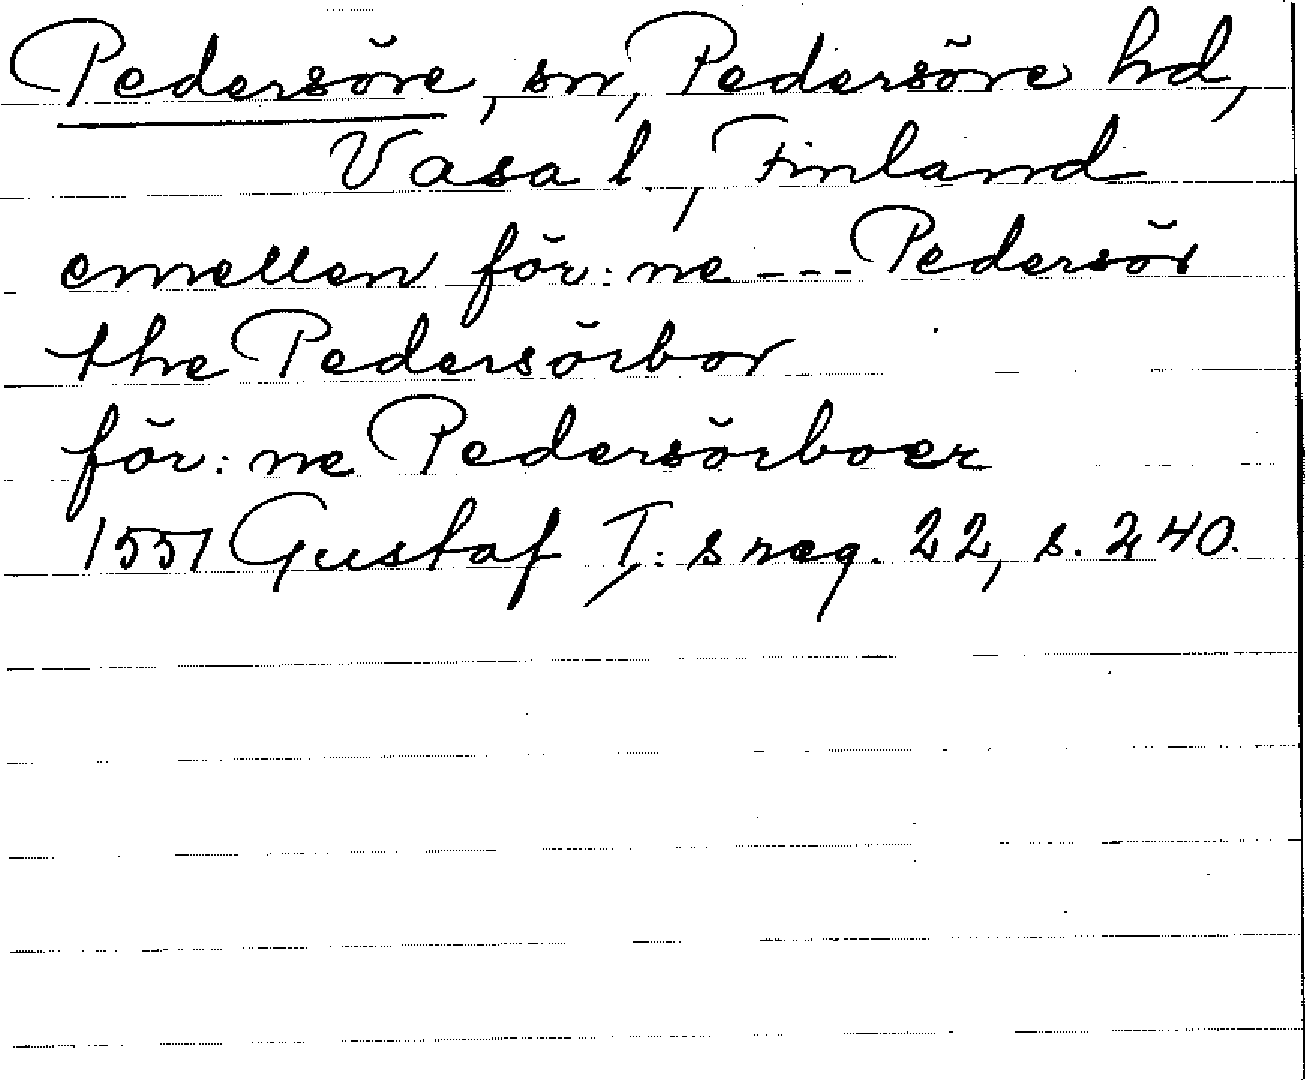 Pedersöre, sn, Pedersöre hd,
Vasa l, Finland
emellen för: ne --- Pedersör
the Pedersörbor
för: ne Pedersörboer
1551 Gustaf I: s reg. 22, s. 240.